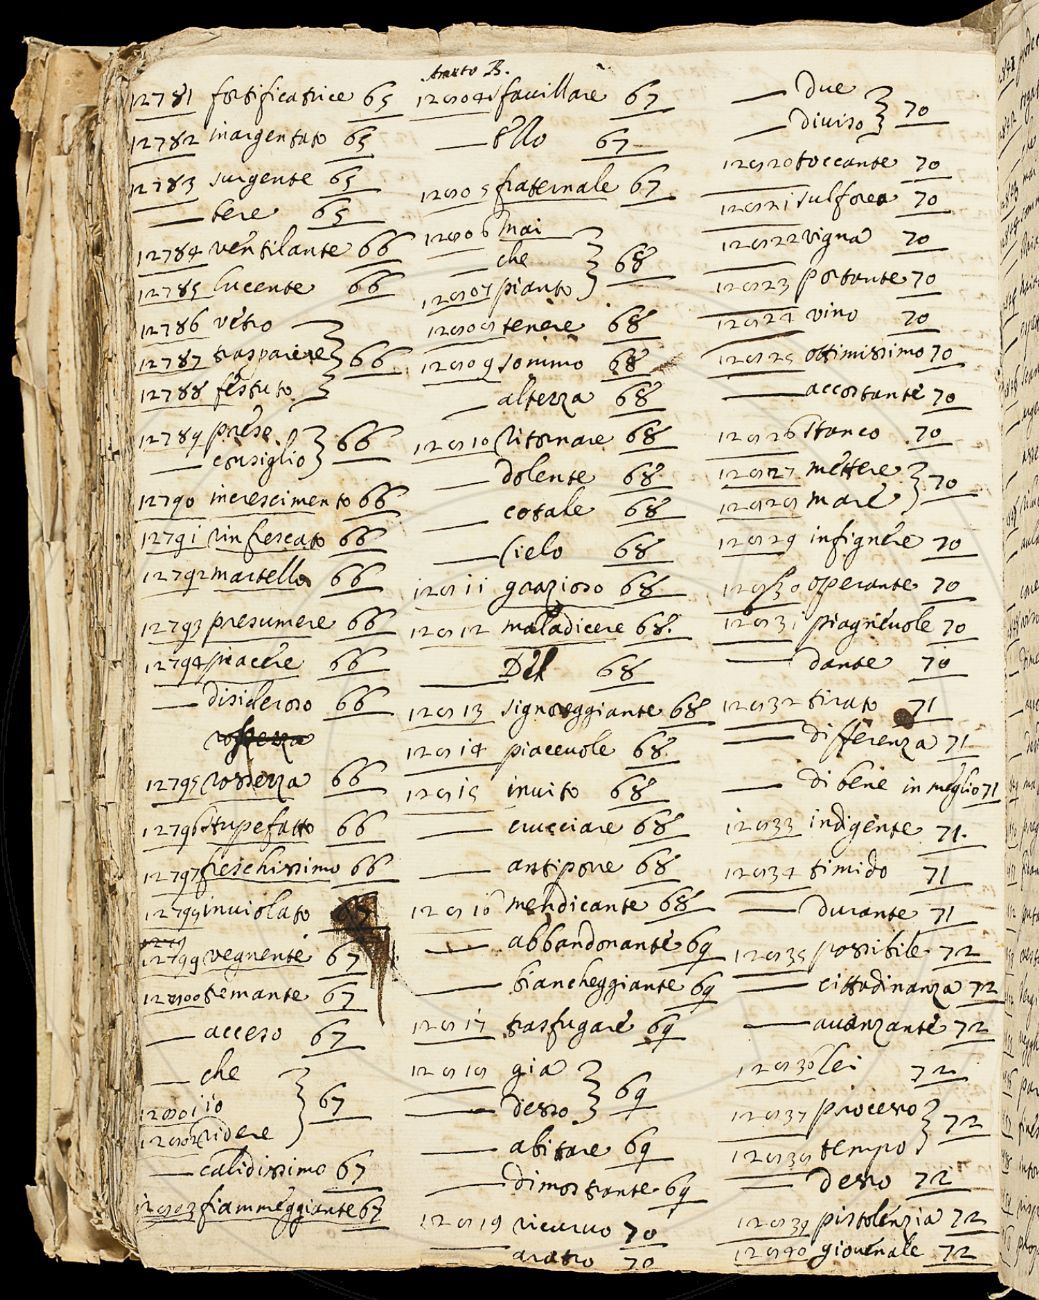 Anuto B.
12781 fortificatrice 65
12782 inargentato 65
12783 surgente 65
— tere 65
12784 ventilante 66
12785 lucente 66
12786 vetro
12787 trasparere 66
12788 festuto
12789 prese
— consiglio 66
12790 increscimento 66
12791 rinfrescato 66
12792 martello 66
12793 presumere 66
12794 piacere 66
— disideroso 66
12795 rossezza 66
12796 stupefatto 66
12797 freschissimo 66
12798 inviolato 67
12799 vegnente 67
12800 temante 67
— acceso 67
— che
12801 io 67
12802 ridere
— calidissimo 67
12803 fiammeggiante 67
12804 favillare 67
— ello 67
12805 fraternale 67
12806 mai
— che 68
12807 pianto
12808 tenere 68
12809 sommo 68
— altezza 68
12810 ritornare 68
— dolente 68
— cotale 68
— cielo 68
12811 grazioso 68
12812 maladicere 68.
— Del 68
12813 signoreggiante 68
12814 piacevole 68
12815 invito 68
— crucciare 68
— antipore 68
12816 mendicante 68
— abbandonante 69
— biancheggiante 69
12817 trasfugare 69
12818 gia
— desso 69
— abitare 69
— dimostrante 69
12819 ricurvo 70
aratro 70
— due
— diviso 70
12820 toccante 70
12821 sulforea 70
12822 vigna 70
12823 portante 70
12824 vino 70
12825 ottimissimo 70
— accostante 70
12826 stanco 70
12827 mettere
12828 mare 70
12829 infignere 70
12830 operante 70
12831 piagnevole 70
— dante 70
12832 tirato 71
— differenza 71
— di bene in meglio 71
12833 indigente 71.
12834 timido 71
— durante 71
12835 possibile 72
— cittadinanza 72
— avanzante 72
12836 lei 72
12837 processo
12838 tempo 72
— desso 72
12839 pistolenzia 72
12840 giovenale 72